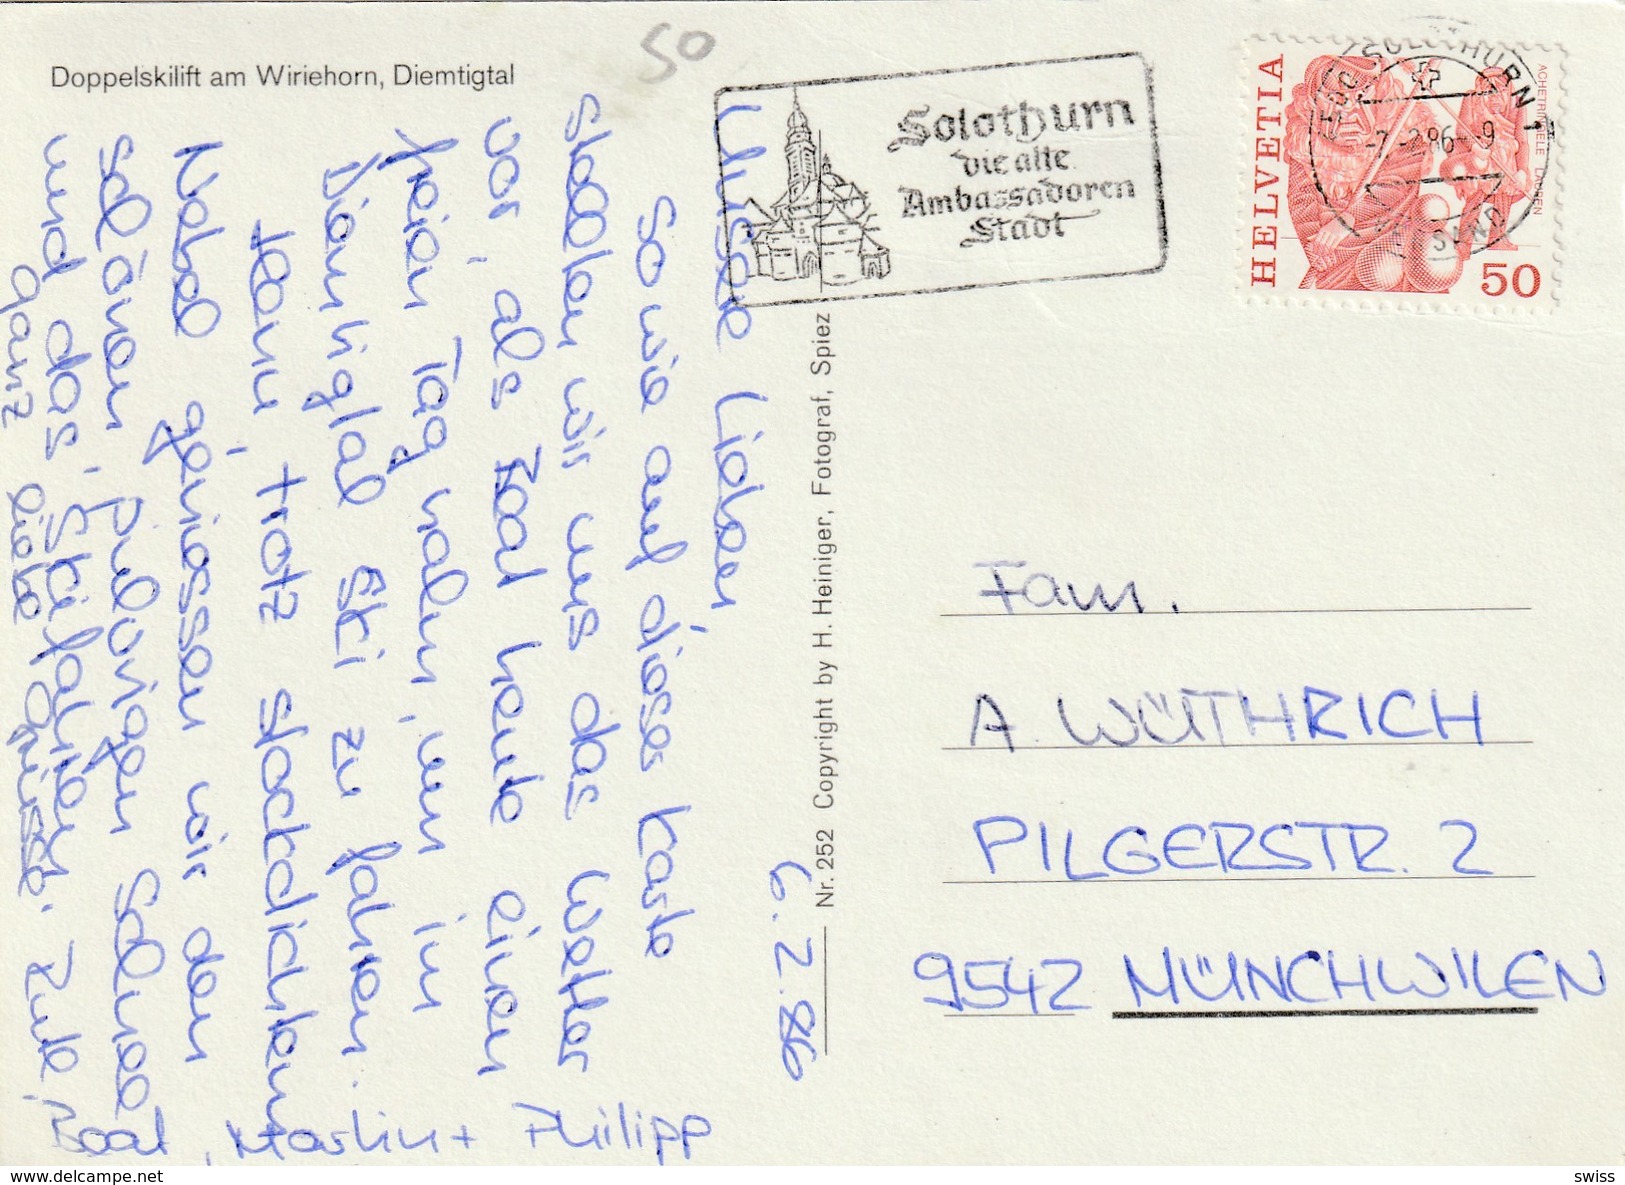 Doppelskilift am Wiriehorn, Diemtigtal
50
Solothurn
die alte
Ambassadoren
Stadt
HELVETIA
ACHETRINGELE LAUPEN
50
4500 SOLOTHURN 1
-7.-2.86--9
VERSAND
Nr. 252 Copyright by H. Heiniger, Fotograf, Spiez
6.2.86
Unsere Lieben,
So wie auf dieser Karte
stellten wir uns das Wetter
vor, als Beat heute einen
freien Tag nahm, um im
Diemtigtal Ski zu fahren.
Denn, trotz stockdichtem
Nebel geniessen wir den
schönen, pulvrigen Schnee
und das Skifahren.
Ganz liebe Grüsse.
Beat, Martin + Philipp
Fam.
A. WÜTHRICH
PILGERSTR. 2
9542 MÜNCHWILEN
swiss